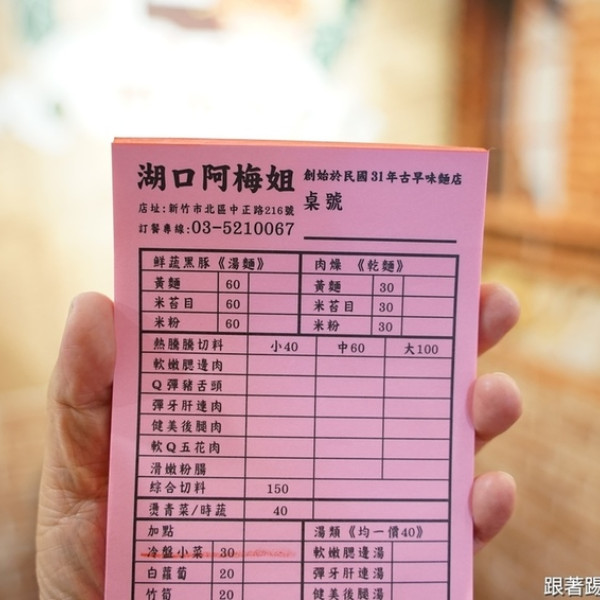 湖口阿梅姐 創始於民國31年古早味麵店
店址:新竹市北區中正路216號 桌號
訂餐專線:03-5210067
鮮蔬黑豚《湯麵》 肉燥 《乾麵》
黃麵 60 黃麵 30
米苔目 60 米苔目 30
米粉 60 米粉 30
熱騰騰切料 小40 中60 大100
軟嫩腮邊肉
Q彈豬舌頭
彈牙肝連肉
健美後腿肉
軟Q五花肉
滑嫩粉腸
綜合切料 150
燙青菜/時蔬 40
加點 湯類《均一價40》
冷盤小菜 30 軟嫩腮邊湯
白蘿蔔 20 彈牙肝連湯
竹筍 20 健美後腿湯
跟著踢